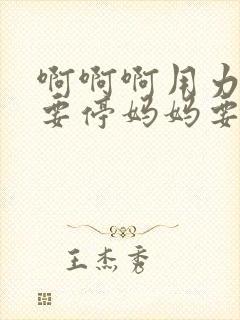 啊啊啊用力
要停妈妈要
王杰秀